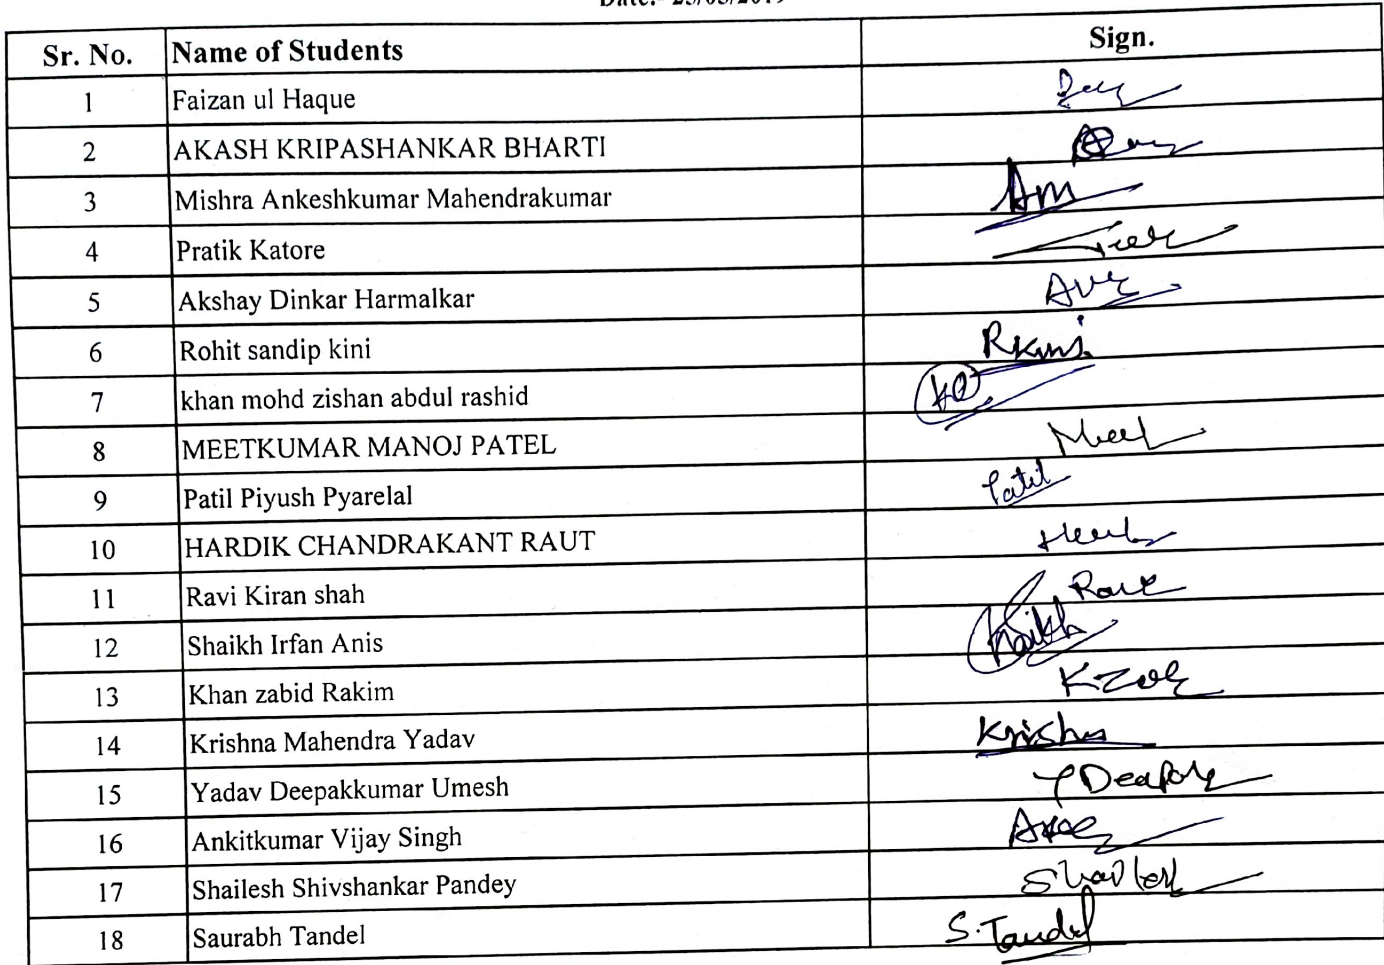 Sr. No. Name of Students Sign.
1 Faizan ul Haque
2 AKASH KRIPASHANKAR BHARTI
3 Mishra Ankeshkumar Mahendrakumar Am
4 Pratik Katore
5 Akshay Dinkar Harmalkar
6 Rohit sandip kini Rkini
7 khan mohd zishan abdul rashid
8 MEETKUMAR MANOJ PATEL Meet
9 Patil Piyush Pyarelal Patil
10 HARDIK CHANDRAKANT RAUT
11 Ravi Kiran shah
12 Shaikh Irfan Anis
13 Khan zabid Rakim
14 Krishna Mahendra Yadav Krishna
15 Yadav Deepakkumar Umesh
16 Ankitkumar Vijay Singh
17 Shailesh Shivshankar Pandey
18 Saurabh Tandel S. Tandel